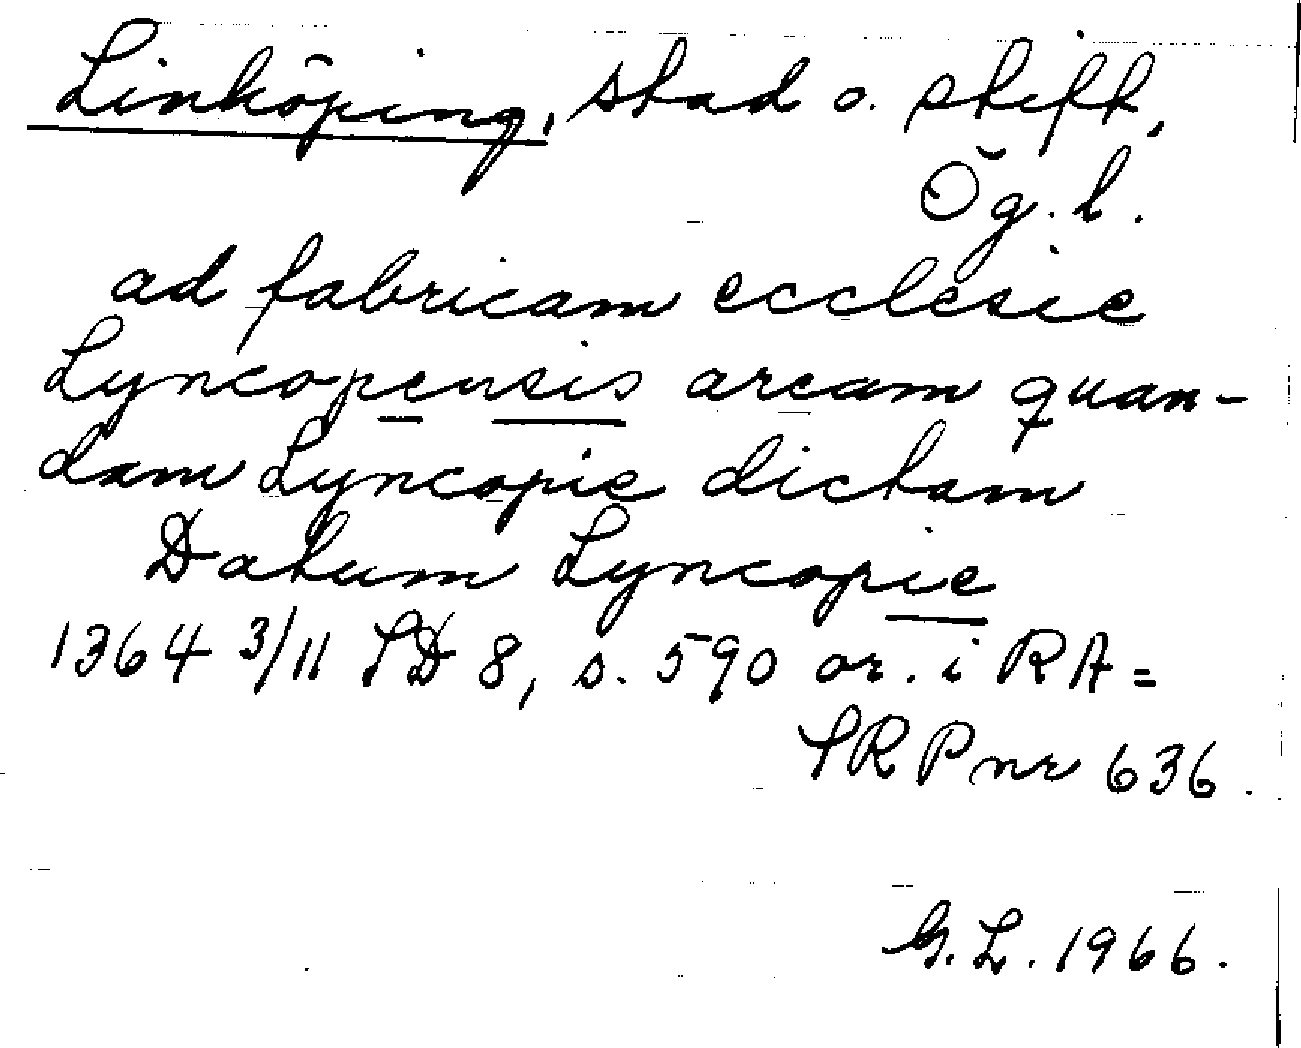 Linköping, stad o. stift,
Ög. l.
ad fabricam ecclesie
Lyncopensis aream quan-
dam Lyncopie dictam
Datum Lyncopie
1364 3/11 SD 8, s. 590 or. i RA =
SRP nr 636.
G. L. 1966.